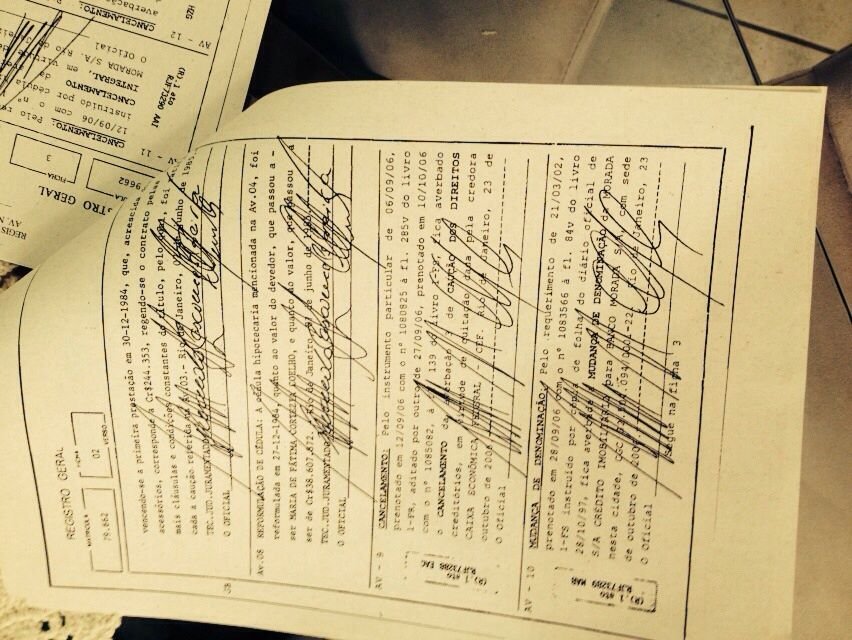 REGISTRO GERAL
MATRÍCULA
79.662
FICHA
02
VERSO
vencendo-se a primeira prestação em 30-12-1984, que, acrescida
acessórios, corresponde a Cr$244.353, regendo-se o contrato pelas
mais cláusulas e condições constantes do título, pelo qual, foi
cada a caução referida na AV/03.- Rio de Janeiro, de junho de 1985
TEC.JUD.JURAMENTADO
O OFICIAL
08
Av.08 REFORMULAÇÃO DE CÉDULA: A cédula hipotecaria mencionada na Av.04, foi
reformulada em 27-12-1984, quanto ao valor do devedor, que passou a -
ser MARIA DE FÁTIMA CORTEZIA COELHO, e quanto ao valor, que passou a
ser de Cr$38.607.872. Rio de Janeiro, de junho de 1985
TEC.JUD.JURAMENTADO
O OFICIAL
AV - 9
CANCELAMENTO: Pelo instrumento particular de 06/09/06,
prenotado em 12/09/06 com o nº 1080825 à fl. 285v do livro
1-FS, aditado por outro de 27/09/06, prenotado em 10/10/06
com o nº 1085082, à 139 do livro 1-FT, fica averbado
o CANCELAMENTO da averbação de CAUÇÃO DOS DIREITOS
creditórios, em virtude de quitação dada pela credora
CAIXA ECONÔMICA FEDERAL - CEF. Rio de Janeiro, 23 de
outubro de 2006
O Oficial
(R).1 ato
RJF73288 EAC
AV - 10
MUDANÇA DE DENOMINAÇÃO: Pelo requerimento de 21/03/02,
prenotado em 28/09/06 com o nº 1083566 à fl. 84v do livro
1-FS instruido por cópia de folha do diário oficial de
28/10/97, fica averbada MUDANÇA DE DENOMINAÇÃO da MORADA
S/A CRÉDITO IMOBILIÁRIO para BANCO MORADA S/A, com sede
nesta cidade, CGC Rio de Janeiro, 23
de outubro de 2006
O Oficial
(R).1 ato
RJF73289 MAR
Segue na ficha 3
REGIS
STRO GERAL
AV.
9662
FICHA
3
AV - 11
CANCELAMENTO: Pelo
12/09/06 com o nº
instruido por cédula
CANCELAMENTO
INTEGRAL, em virtude da
MORADA S/A. Rio de
O Oficial
(R).1 ato
RJF73290 AAI
AV - 12
CANCELAMENTO:
averbação
HZG